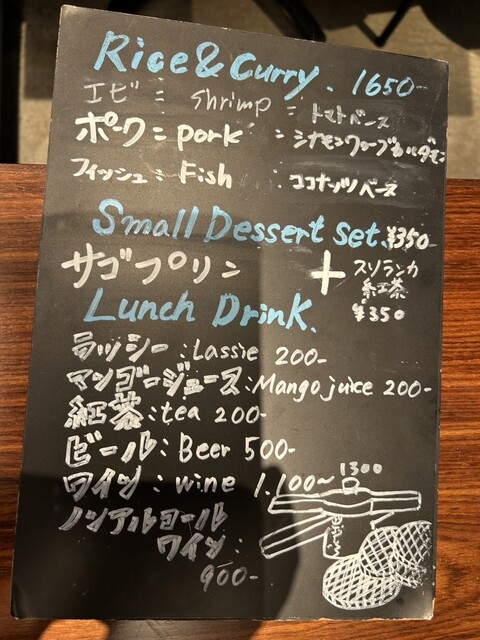 Rice & Curry. 1650-
エビ = Shrimp = トマトベース
ポーク = pork = シナモンクローブカルダモン
フィッシュ = Fish ココナッツベース
Small Dessert set. ¥350-
サゴプリン + スリランカ
紅茶
¥350
Lunch Drink.
ラッシー : Lassie 200-
マンゴージュース : Mango juice 200-
紅茶 : tea 200-
ビール : Beer 500-
ワイン : wine 1,100~
1300
ノンアルコール
ワイン :
900-